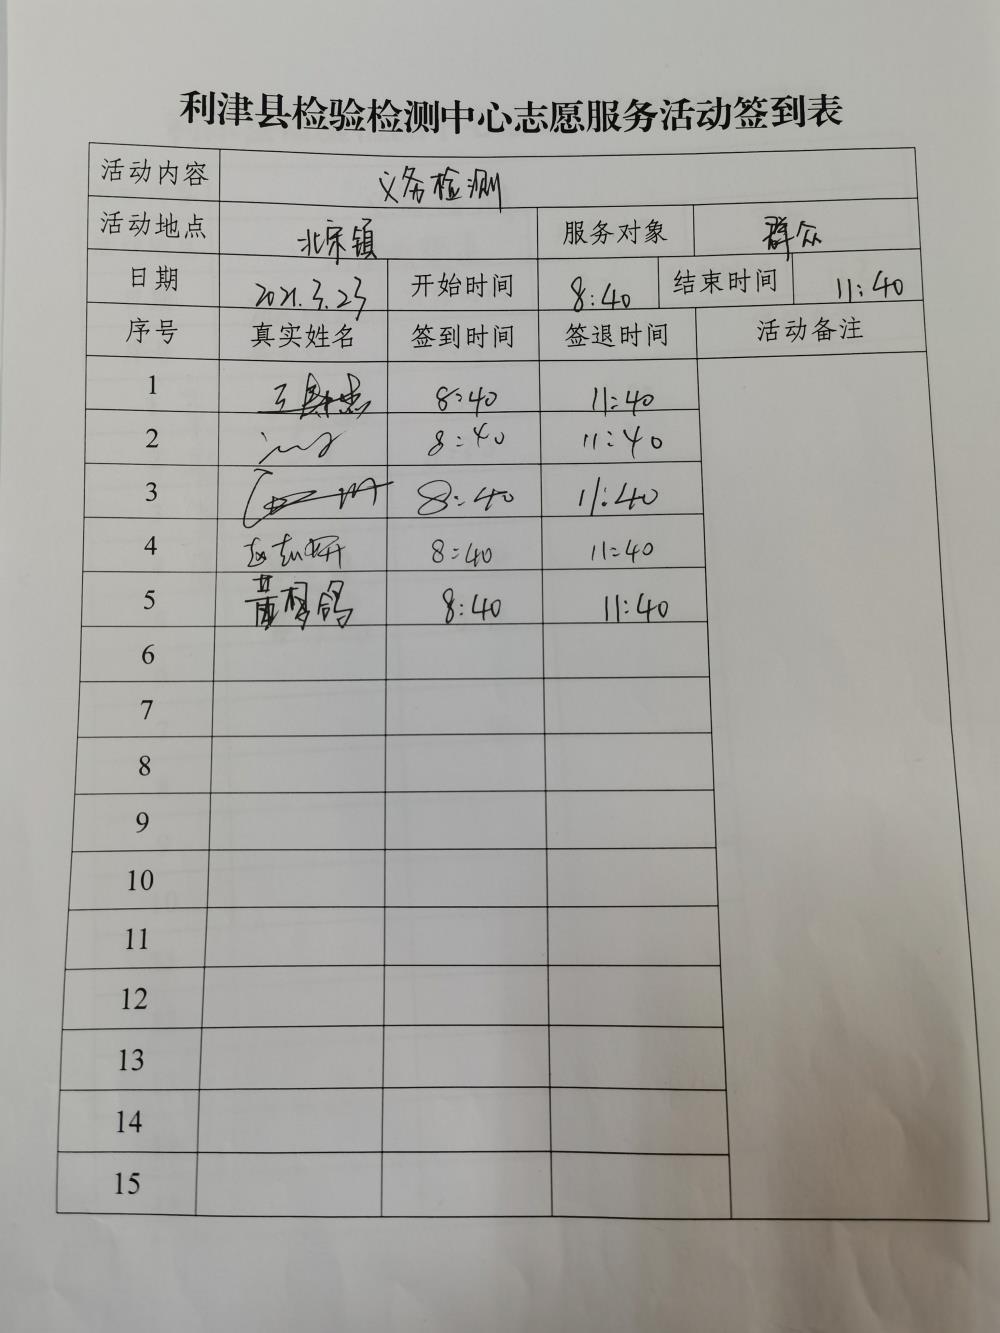 利津县检验检测中心志愿服务活动签到表
活动内容 义务检测
活动地点 北宋镇 服务对象 群众
日期 2021.3.23 开始时间 8:40 结束时间 11:40
序号 真实姓名 签到时间 签退时间 活动备注
1 8:40 11:40
2 8:40 11:40
3 8:40 11:40
4 8:40 11:40
5 8:40 11:40
6
7
8
9
10
11
12
13
14
15